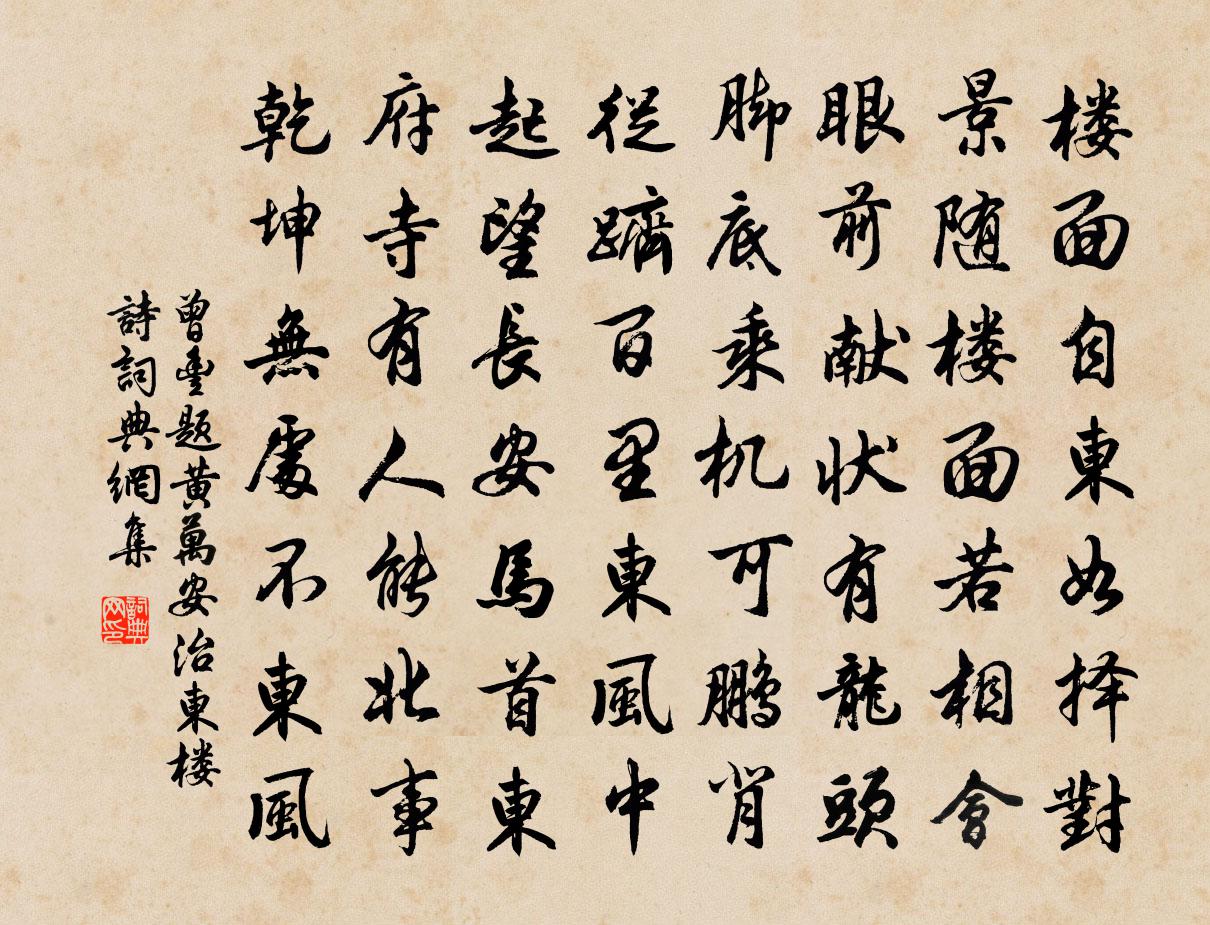 楼面自東如择對
景随楼面若相會
眼前献状有龍頭
脚底乘机可鹏背
從躋百里東風中
起望長安馬首東
府寺有人能北事
乾坤無處不東風
曾豐题黄萬安治東楼
詩詞典網集
詞典网印